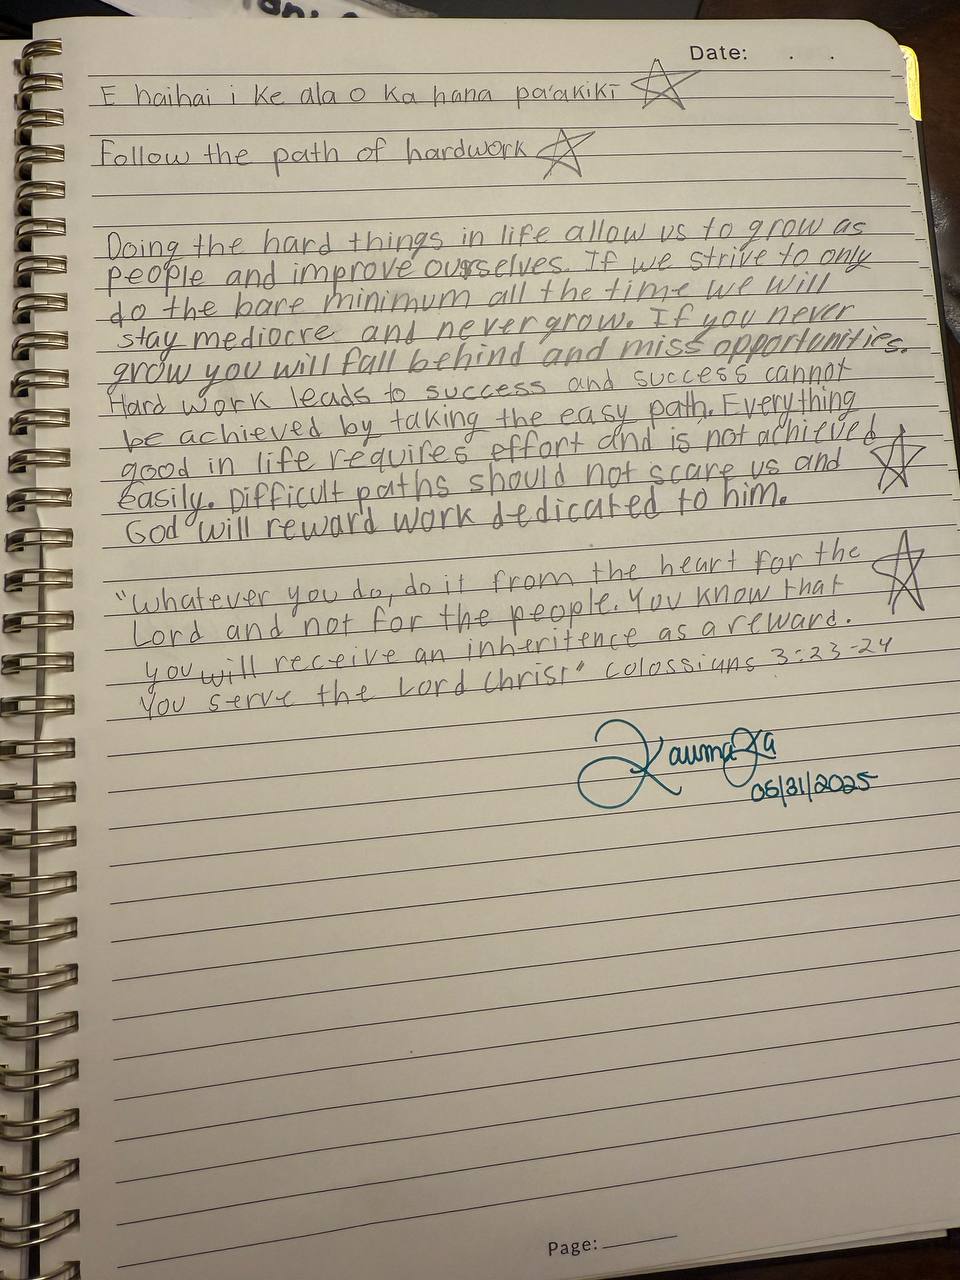 Date: . .
E haihai i ke ala o ka hana pa'akikī
Follow the path of hardwork
Doing the hard things in life allow us to grow as
people and improve ourselves. If we strive to only
do the bare minimum all the time we will
stay mediocre and never grow. If you never
grow you will fall behind and miss opportunities.
Hard work leads to success and success cannot
be achieved by taking the easy path. Everything
good in life requires effort and is not achieved
easily. Difficult paths should not scare us and
God will reward work dedicated to him.
"Whatever you do, do it from the heart for the
Lord and not for the people. You know that
you will receive an inheritence as a reward.
You serve the Lord Christ" Colossians 3:23-24
Kaumaka
05/31/2025
Page: